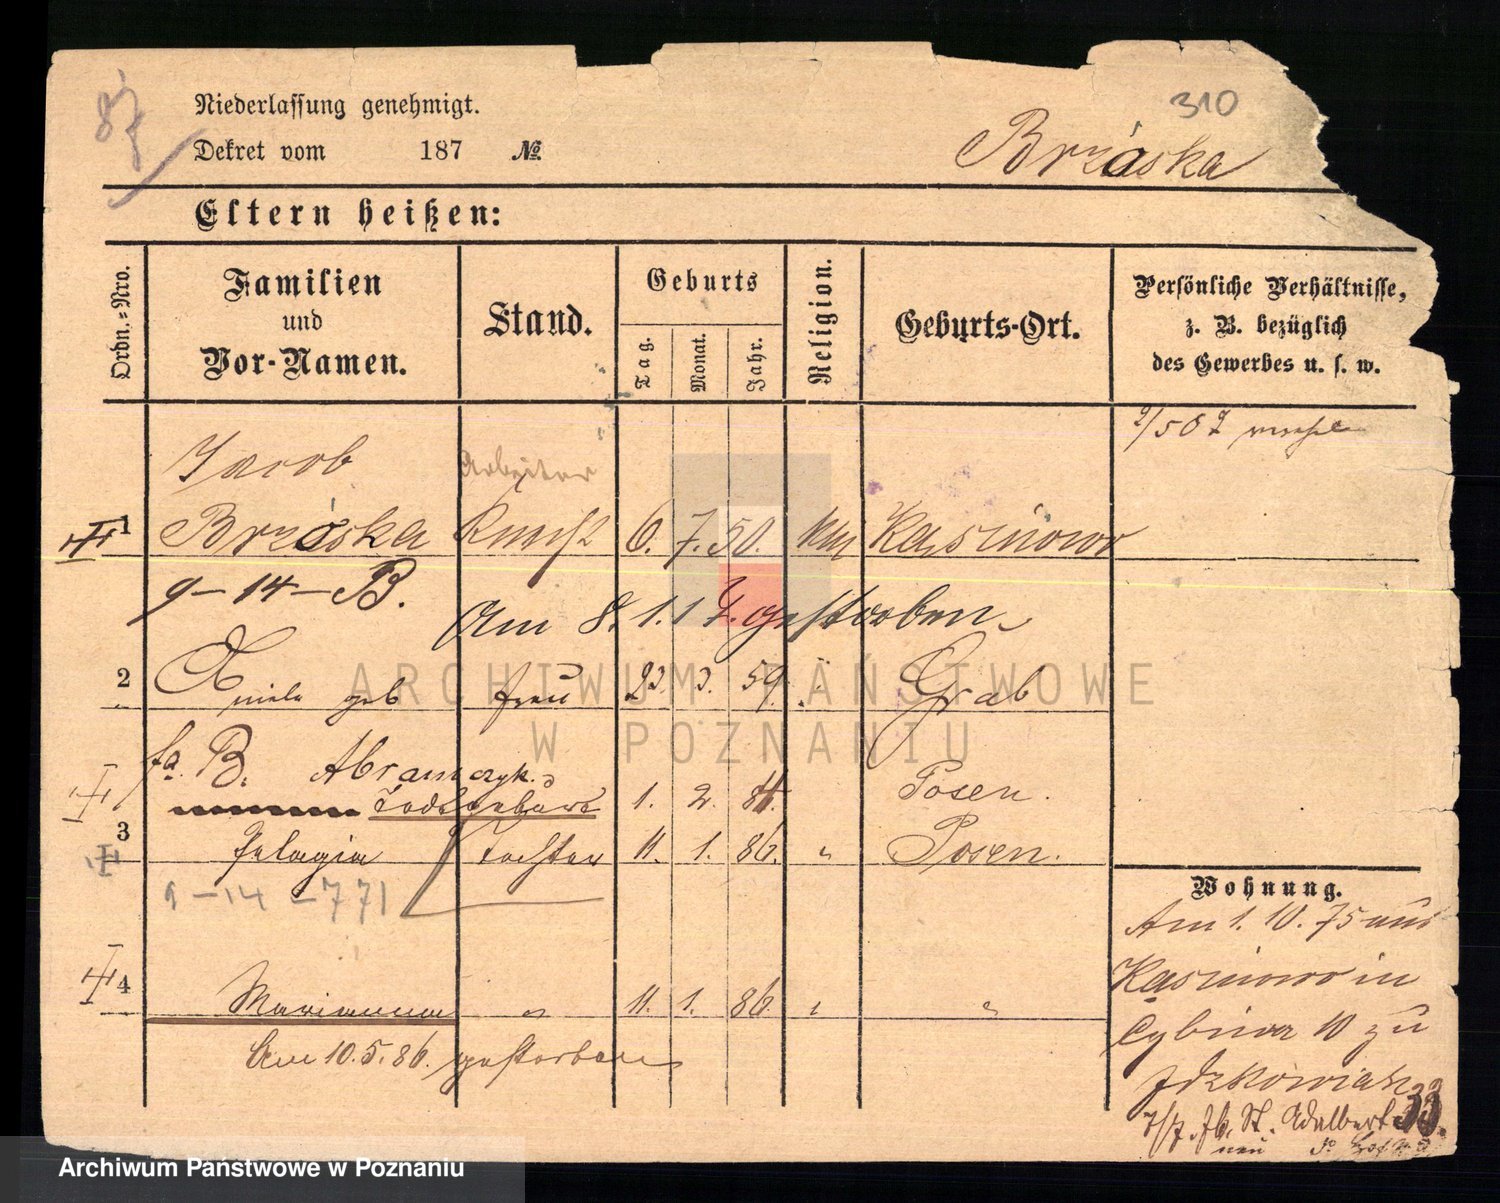 310
87
Niederlassung genehmigt.
Dekret vom 187 №
Brzóska
Eltern heißen:
Ordn.=Nro.
Familien
und
Vor-Namen.
Stand.
Geburts
Tag.
Monat.
Jahr.
Religion.
Geburts-Ort.
Persönliche Verhältnisse,
z. B. bezüglich
des Gewerbes u. s. w.
Jacob Arbeiter
1 Brzóska Knecht 6. 7. 50. kath Kazmierowo
9-14-B.
Am 8.1.14. gestorben
2 Aniela geb Frau 23. 3. 59. " Grab
fa. B. Abramczyk.
Todtgeburt 1. 2. 84. Posen.
3 Pelagia Tochter 11. 1. 86. " Posen.
9-14-771
4 Marianna " 11. 1. 86. " "
Am 10.5.86. gestorben
Wohnung.
Am 1. 10. 75 aus
in
Cybina 10 zu
St. Adalbert 33.
neu
ARCHIWUM PAŃSTWOWE
W POZNANIU
Archiwum Państwowe w Poznaniu